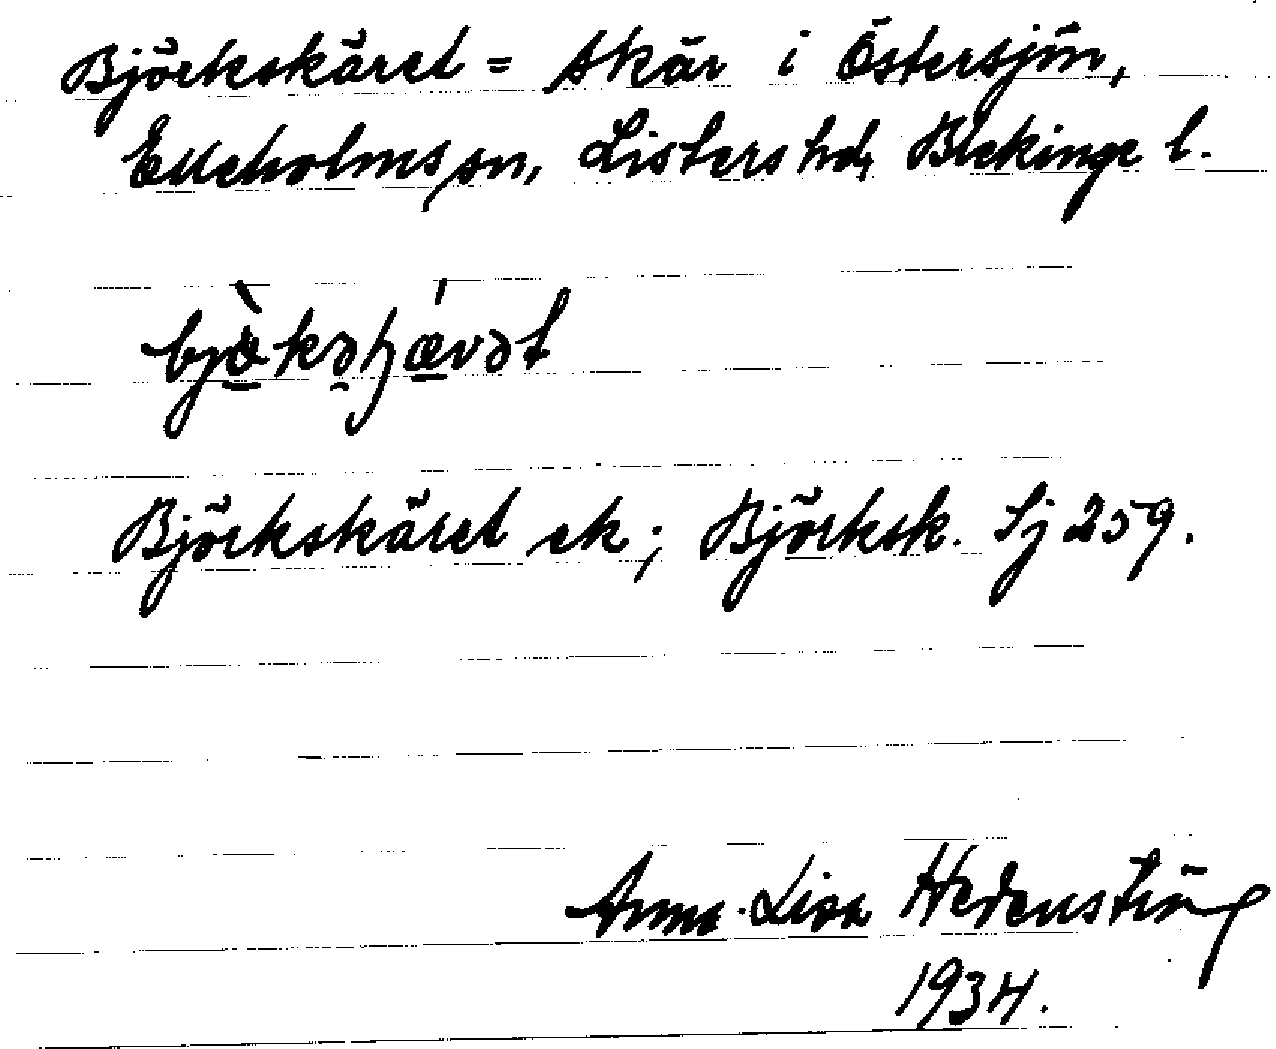 Björkskäret = skär i Östersjön,
Elleholms sn, Listers hd, Blekinge l.
Björkskäret ek; Björksk. Sj 259.
Anna-Lisa Hedenstierna
1934.